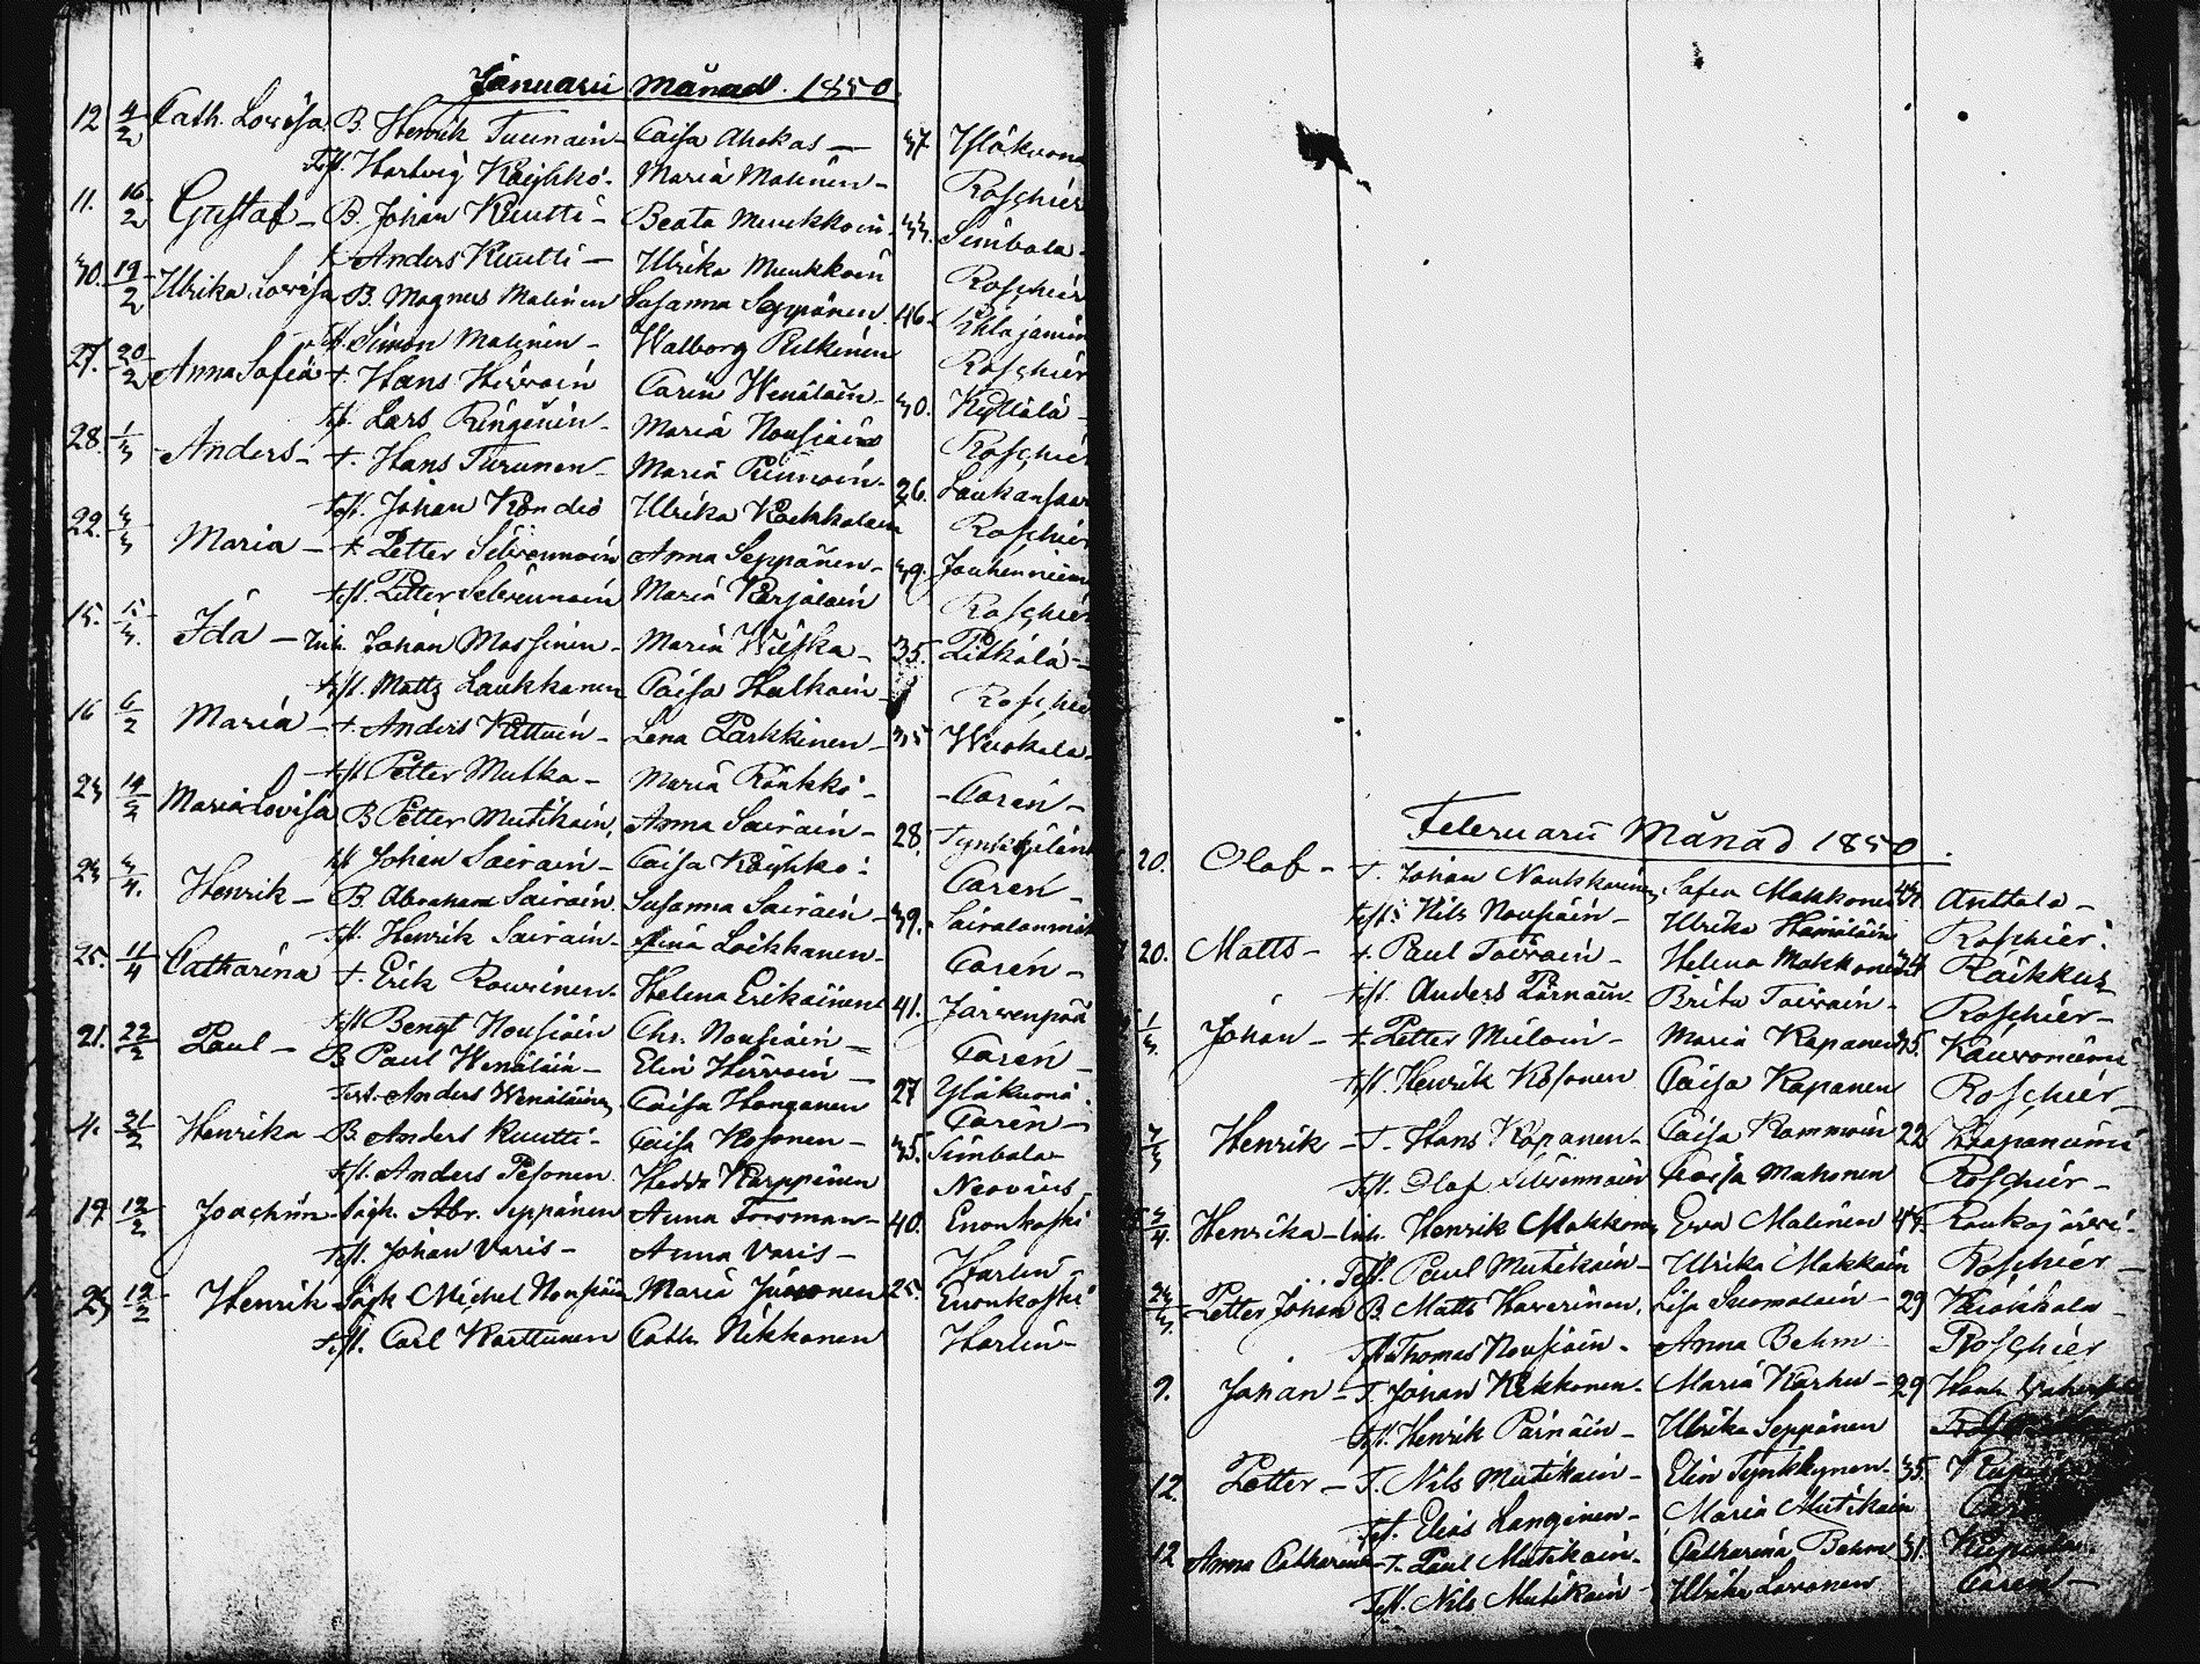 Januarii månad. 1850.
12 4/2 Cath. Lovisa B. Henrik Tuunain Caisa Ahokas — 37 Yläkuona
Test. Hartvig Käyhkö Maria Malinen — Roschier
11. 16/2 Gustaf — B. Johan Kuutti — Beata Muukkoin 33. Simbala
t. Anders Kuutti — Ulrika Muukkoin Roschier
30. 19/2 Ulrika Lovisa B. Magnus Malinen Susanna Seppänen 46. Pihlajaniem
Test. Simon Malinen — Walborg Pulkinen Roschier
27. 20/2 Anna Sofia t. Hans Hirvoin Carin Wenäläin 30. Kyllälä
Test. Lars Ringinen — Maria Nousiain Roschier
28. 1/3 Anders — t. Hans Turunen — Maria Punnoin 26. Laukansaar
test. Johan Kondio Ulrika Kockkolain Roschier
22. 3/3 Maria — t. Petter Silvennoin Anna Seppänen — 39. Jouhenniem
test. Petter Silvennoin Maria Karjalain Roschier
15. 15/3. Ida — Inh. Johan Massinen — Maria Wilska — 35. Pitkälä —
test. Matts Laukkanen Caisa Hulkoin Roschier
16 6/2 Maria — t. Anders Kettuin — Lena Parkkinen — 35 Wuokala
test Petter Mutka — Maria Rönkkö — Carén —
23 14/2 Maria Lovisa B Petter Mutikain, Anna Sairain — 28.
tst Johan Sairain — Caisa Käyhkö Carén —
23 3/4. Henrik — B. Abraham Sairain Susanna Sairain — 39.
Test. Henrik Sairain — Loikkanen — Carén —
25. 11/4 Catharina t. Erik Rouvinen — Helena Erikäinen 41. Järvenpää
Test Bengt Nousiain Chr. Nousiain — Carén —
21. 22/2 Paul — B Paul Wenäläin — Elin Hirvoin — 27 Yläkuona
Test. Anders Wenäläinen Caisa Hanganen Carén —
4. 21/2 Henrika — B. Anders Kuutti — Caisa Kosonen — 35. Simbala
test. Anders Pesonen Hedda Karppinen Neovius
19 12/2 Joachim Abr. Seppänen Anna Forsman — 40. Enonkoski
test. Johan Varis — Anna Varis — Harlin —
23 12/2 Henrik Michel Nousiain Maria Juvonen 25. Enonkoski
test. Carl Karttunen Cath. Nikkonen Harlin —
Februarii Månad 1850.
20. Olof — T. Johan Naukkarinen Sofia Makkonen 43 Anttola —
test. Nils Nousiain — Ulrika Hämäläin Roschier.
20. Matts — t. Paul Toivain — Helena Makkonen 34 Raikkus
test. Anders Pärnäin — Brita Toivain — Roschier —
1/3. Johan — t. Petter Miloin — Maria Kapanen 35. Kauvoniemi
test. Henrik Kosonen Caisa Kapanen Roschier —
7/3 Henrik — T. Hans Kapanen — Caisa Kammoin 22 Kaapaniemi
Test. Olof Silvennoin Caisa Muhonen Roschier —
3/4. Henrika — Inh. Henrik Makkonen Ewa Malinen 44. Raukajärvi
Test. Paul Mutikain — Ulrika Makkoin Roschier —
23/3. Petter Johan B. Matts Haverinen, Lisa Suomalain — 29
Test Thomas Nousiain — Anna Behm Roschier
9. Johan — T. Johan Kekkonen — Maria Karhu — 29
Test. Henrik Pärnäin — Ulrika Seppänen
12. Petter — T. Nils Mutikain — Elin Tynkkynen 35.
Test. Elias Langinen — Maria Mutikain
12 Anna Catharina — t. Paul Mutikain — Catharina Behm 31.
Test. Nils Mutikain — Ulrika Lavonen Carén —